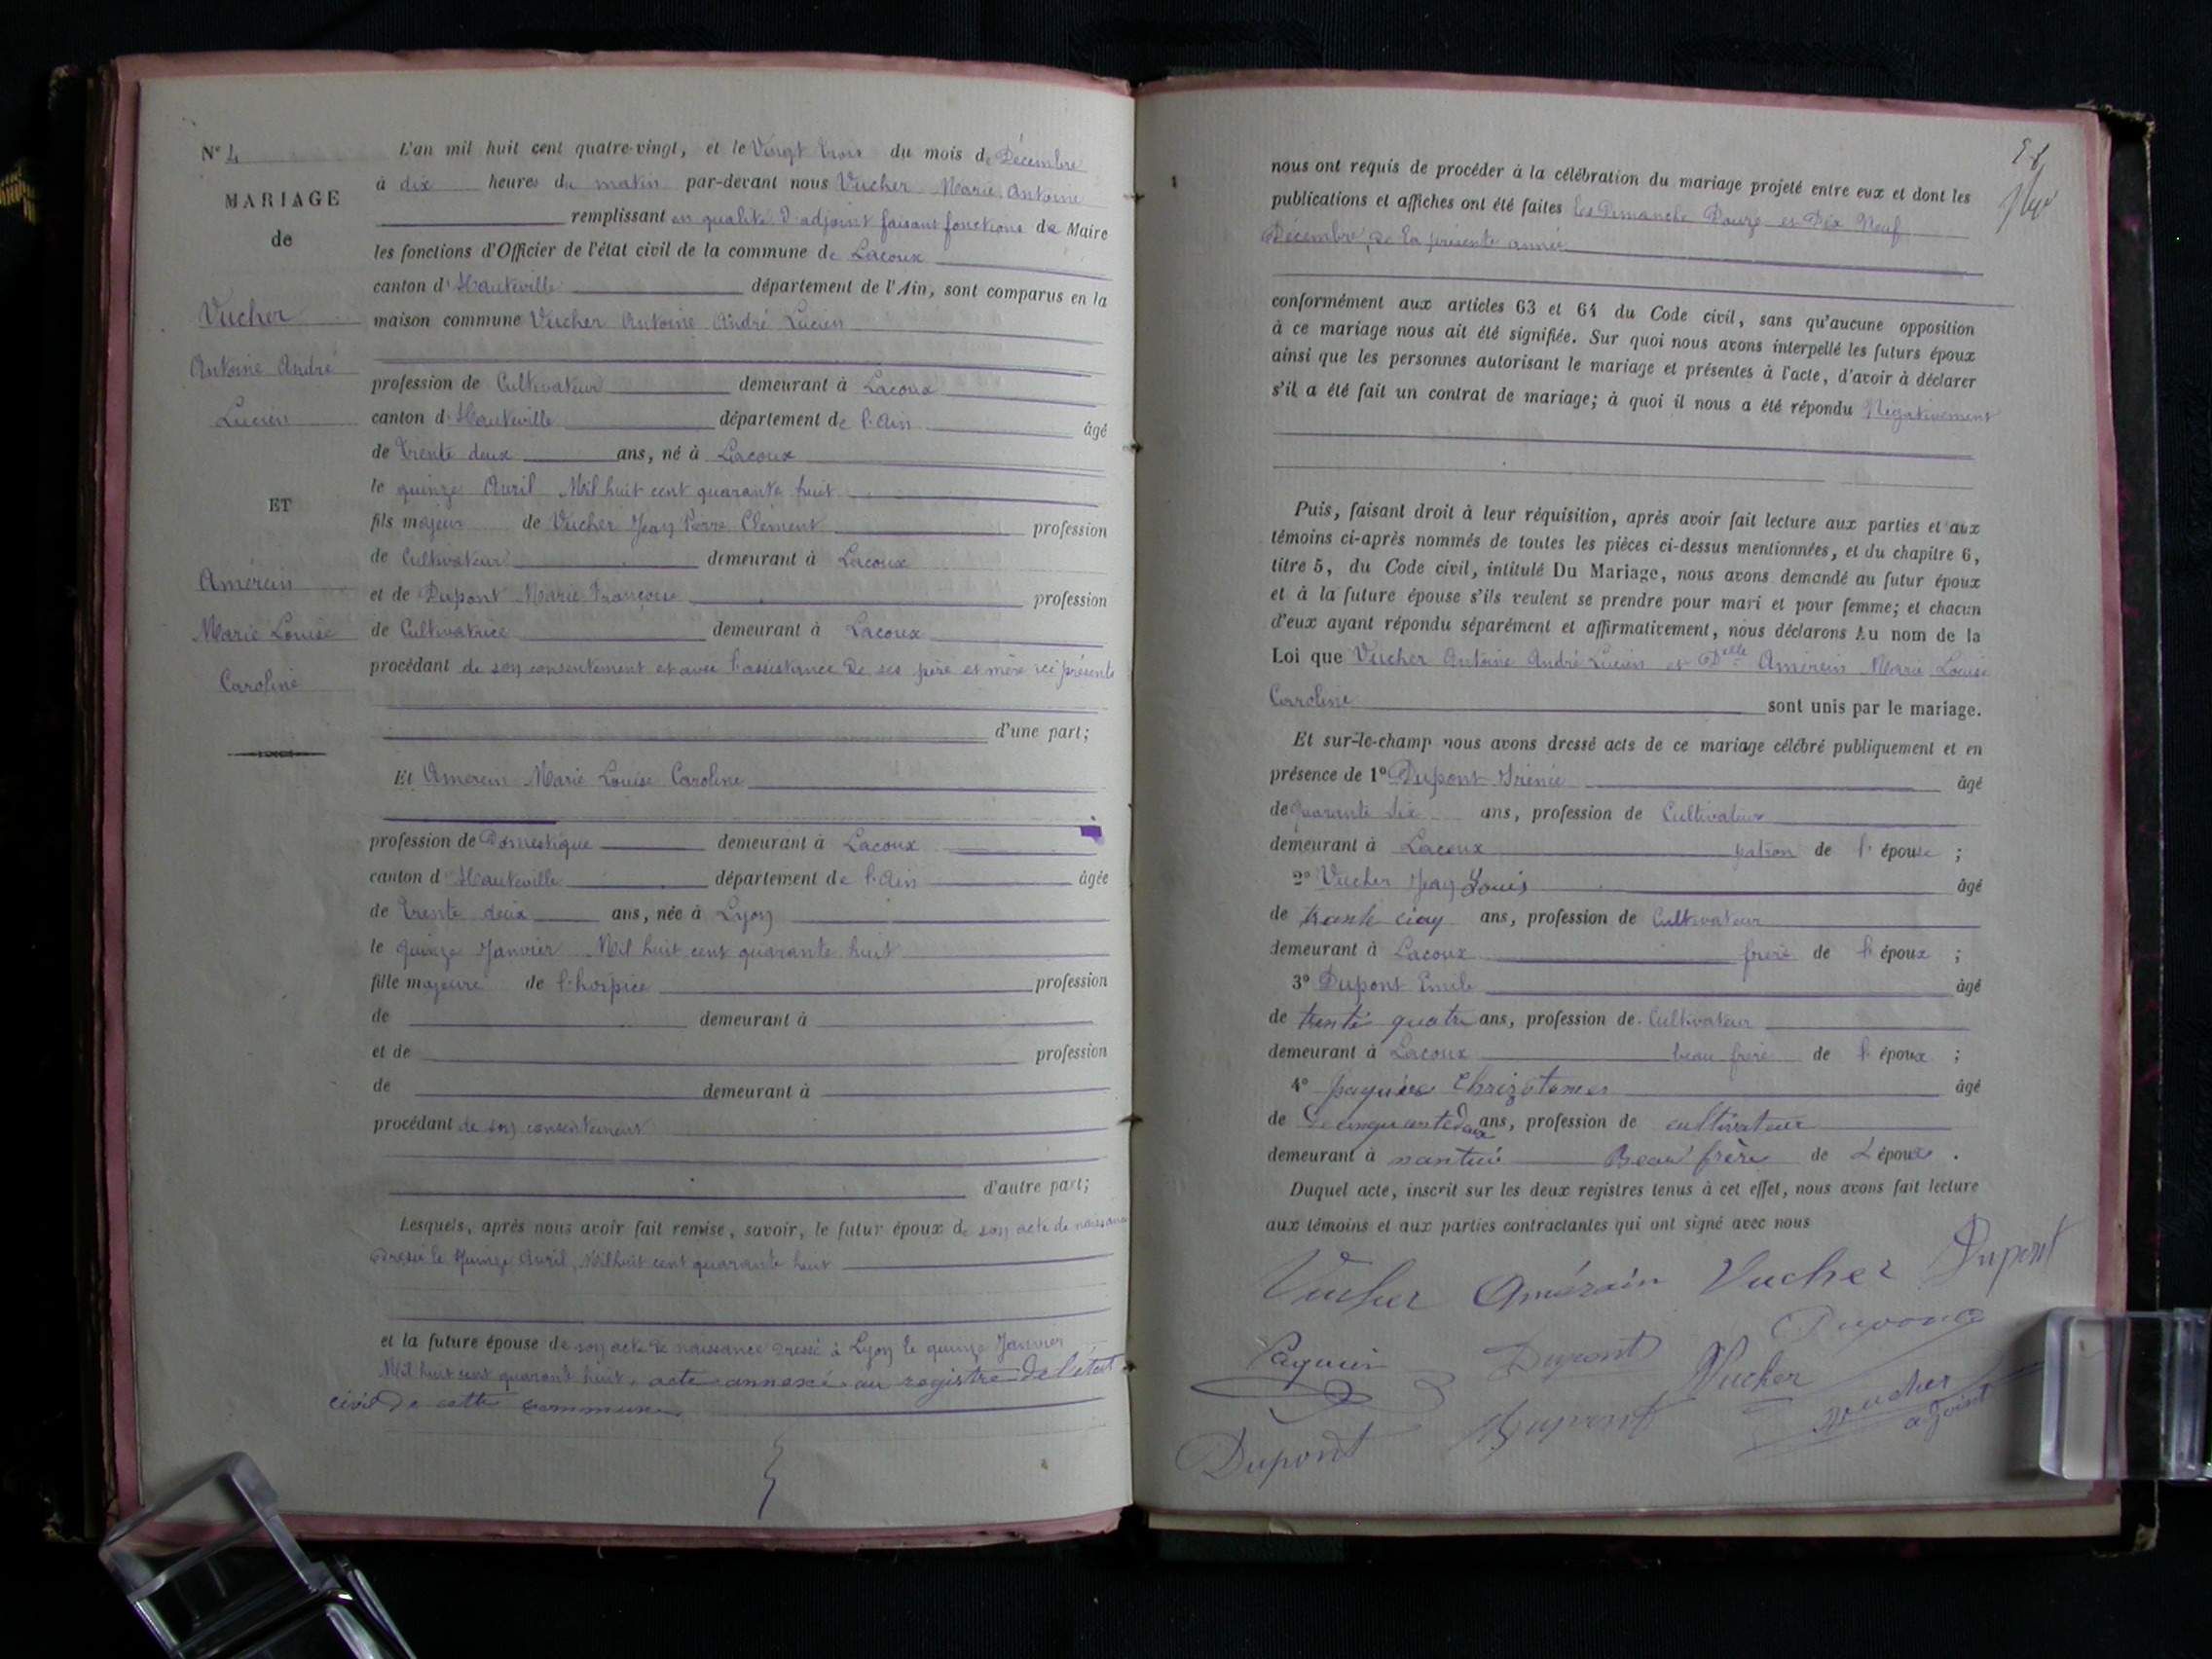 N° 4
MARIAGE
de
Vucher
Antoine André
Lucien
ET
Amérein
Marie Louise
Caroline
L'an mil huit cent quatre-vingt, et le Vingt trois du mois de Décembre
à dix heures du matin par-devant nous Vucher Marie Antoine
remplissant en qualité d'adjoint faisant fonctions de Maire
les fonctions d'Officier de l'état civil de la commune de Lacoux
canton d'Hauteville département de l'Ain, sont comparus en la
maison commune Vucher Antoine André Lucien
profession de Cultivateur demeurant à Lacoux
canton d'Hauteville département de l'Ain âgé
de trente deux ans, né à Lacoux
le quinze Avril Mil huit cent quarante huit
fils majeur de Vucher Jean Pierre Clément profession
de Cultivateur demeurant à Lacoux
et de Dupont Marie Françoise profession
de Cultivatrice demeurant à Lacoux
procédant de son consentement et avec l'assistance de ses père et mère ici présents
d'une part;
Et Amerein Marie Louise Caroline
profession de Domestique demeurant à Lacoux
canton d'Hauteville département de l'Ain âgée
de trente deux ans, née à Lyon
le quinze Janvier Mil huit cent quarante huit
fille majeure de l'hospice profession
de demeurant à
et de profession
de demeurant à
procédant de son consentement
d'autre part;
Lesquels, après nous avoir fait remise, savoir, le futur époux de son acte de naissance
Dressé le quinze Avril, Mil huit cent quarante huit
et la future épouse de son acte de naissance Dressé à Lyon le quinze Janvier
Mil huit cent quarante huit, acte annexé au registre de l'état
civil de cette commune
nous ont requis de procéder à la célébration du mariage projeté entre eux et dont les
publications et affiches ont été faites les Dimanche Douze et Dix Neuf
Décembre, de la présente année
conformément aux articles 63 et 64 du Code civil, sans qu'aucune opposition
à ce mariage nous ait été signifiée. Sur quoi nous avons interpellé les futurs époux
ainsi que les personnes autorisant le mariage et présentes à l'acte, d'avoir à déclarer
s'il a été fait un contrat de mariage; à quoi il nous a été répondu Négativement
Puis, faisant droit à leur réquisition, après avoir fait lecture aux parties et aux
témoins ci-après nommés de toutes les pièces ci-dessus mentionnées, et du chapitre 6,
titre 5, du Code civil, intitulé Du Mariage, nous avons demandé au futur époux
et à la future épouse s'ils veulent se prendre pour mari et pour femme; et chacun
d'eux ayant répondu séparément et affirmativement, nous déclarons Au nom de la
Loi que Vucher Antoine André Lucien et Delle Amérein Marie Louise
Caroline sont unis par le mariage.
Et sur-le-champ nous avons dressé acte de ce mariage célébré publiquement et en
présence de 1° Dupont Irénée âgé
de quarante six ans, profession de Cultivateur
demeurant à Lacoux patron de l'épouse ;
2° Vucher Jean Louis âgé
de ans, profession de Cultivateur
demeurant à Lacoux frère de l'époux ;
3° Dupont Emile âgé
de trente quatre ans, profession de Cultivateur
demeurant à Lacoux beau frère de l'époux ;
4° âgé
de cinquante deux ans, profession de cultivateur
demeurant à Beau frère de L'époux .
Duquel acte, inscrit sur les deux registres tenus à cet effet, nous avons fait lecture
aux témoins et aux parties contractantes qui ont signé avec nous
Vucher Amérein Vucher Dupont
Dupont
Paquier Dupont Vucher
Vucher
adjoint
Dupont Dupont